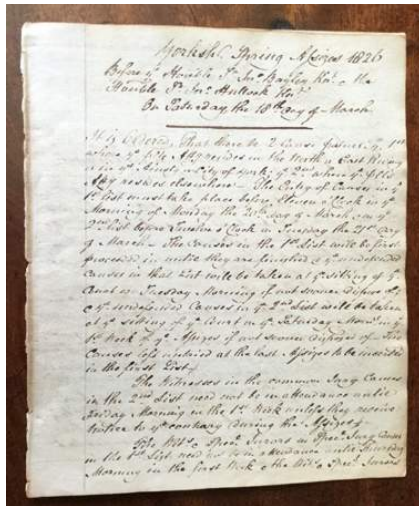 Yorksh. Spring Assizes 1826
Before ye Honble Sr Jno. Bayley Knt. & the
Honble Sr Jno. Hullock Knt.
On Saturday the 18th day of March
It is Ordered, That there be 2 Cause Lists ye 1st
where ye Plts Atty resides in the North or East Riding
or in ye Ainsty or City of York, ye 2nd where ye Plts
Atty resides elsewhere. The Entry of Causes in ye
1st List must take place before Eleven o'Clock in ye
Morning of Monday the 20th day of March & in ye
2nd List before Twelve o'Clock on Tuesday the 21st day
of March. The Causes in the 1st List will be first
proceeded in until they are finished & ye undefended
Causes in that List will be taken at ye sitting of ye
Court on Tuesday Morning if not sooner disposed of
& ye undefended Causes in ye 2nd List will be taken
at ye sitting of ye Court on ye Saturday Morng in ye
1st Week of ye Assizes if not sooner disposed of. The
Causes left untried at the last Assizes to be inserted
in the first List.
The Witnesses in the common Jury Causes
in the 2nd List need not be in attendance until
Friday Morning in the 1st Week unless they receive
notice to ye contrary during the Assizes.
The Witns & Specl Jurors in Specl Jury Causes
in the 1st List need not be in attendance until Thursday
Morning in the first Week & the Wits & Specl Jurors